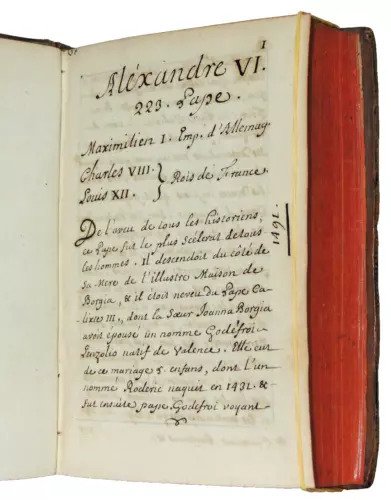 1
Aléxandre VI.
223. Pape.
Maximilien I. Emp. d'Allemag.
Charles VIII.
Louis XII. } Rois de France.
De l'aveu de tous les historiens,
ce Pape fut le plus scélerat de tous
les hommes. Il descendoit du côté de
sa mere de l'illustre Maison de
Borgia, & il étoit neveu du Pape Ca-
lixte III., dont la Sœur Joanna Borgia
avoit épousé un nommé Godefroi
natif de Valence. Elle eut
de ce mariage 5 enfans, dont l'un
nommé Roderic naquit en 1431. &
fut ensuite pape. Godefroi voyant
1491.